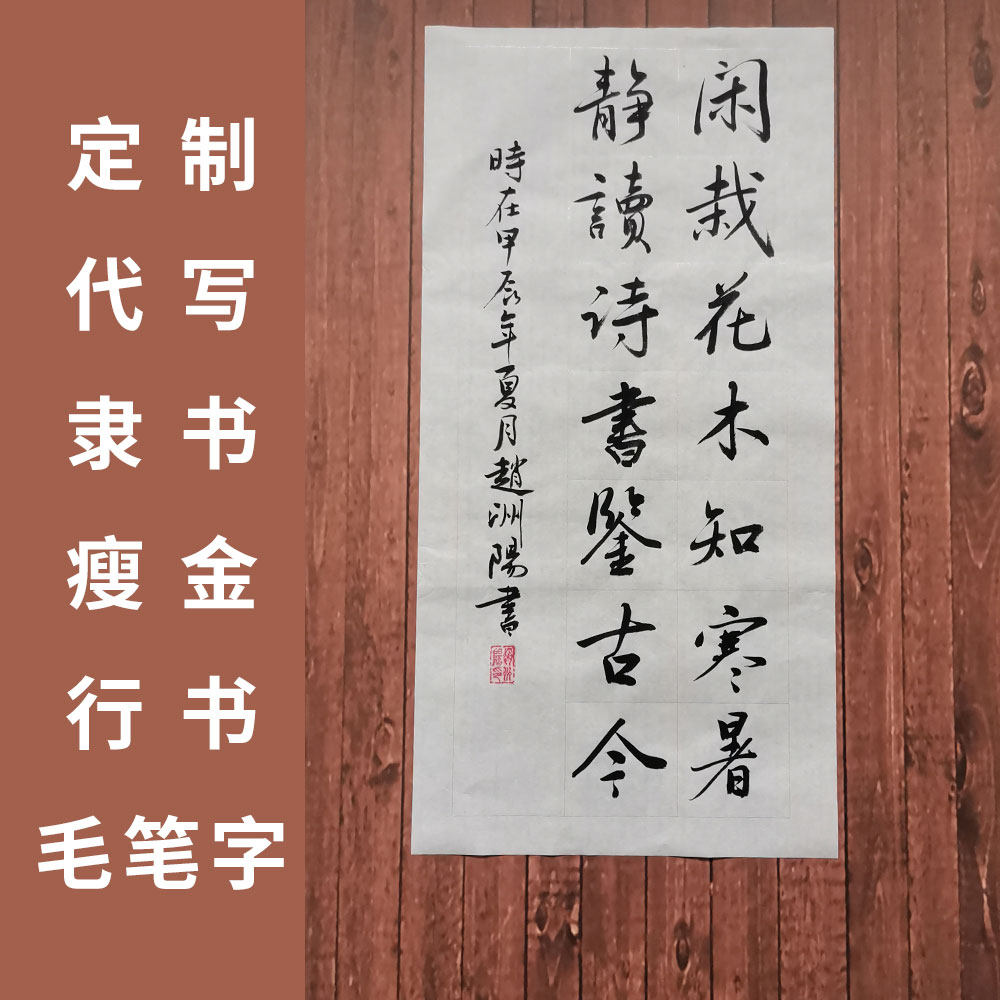 定制
代写
隶书
瘦金
行书
毛笔字
闲栽花木知寒暑
静讀诗書鑒古今
時在甲辰年夏月趙洲陽書